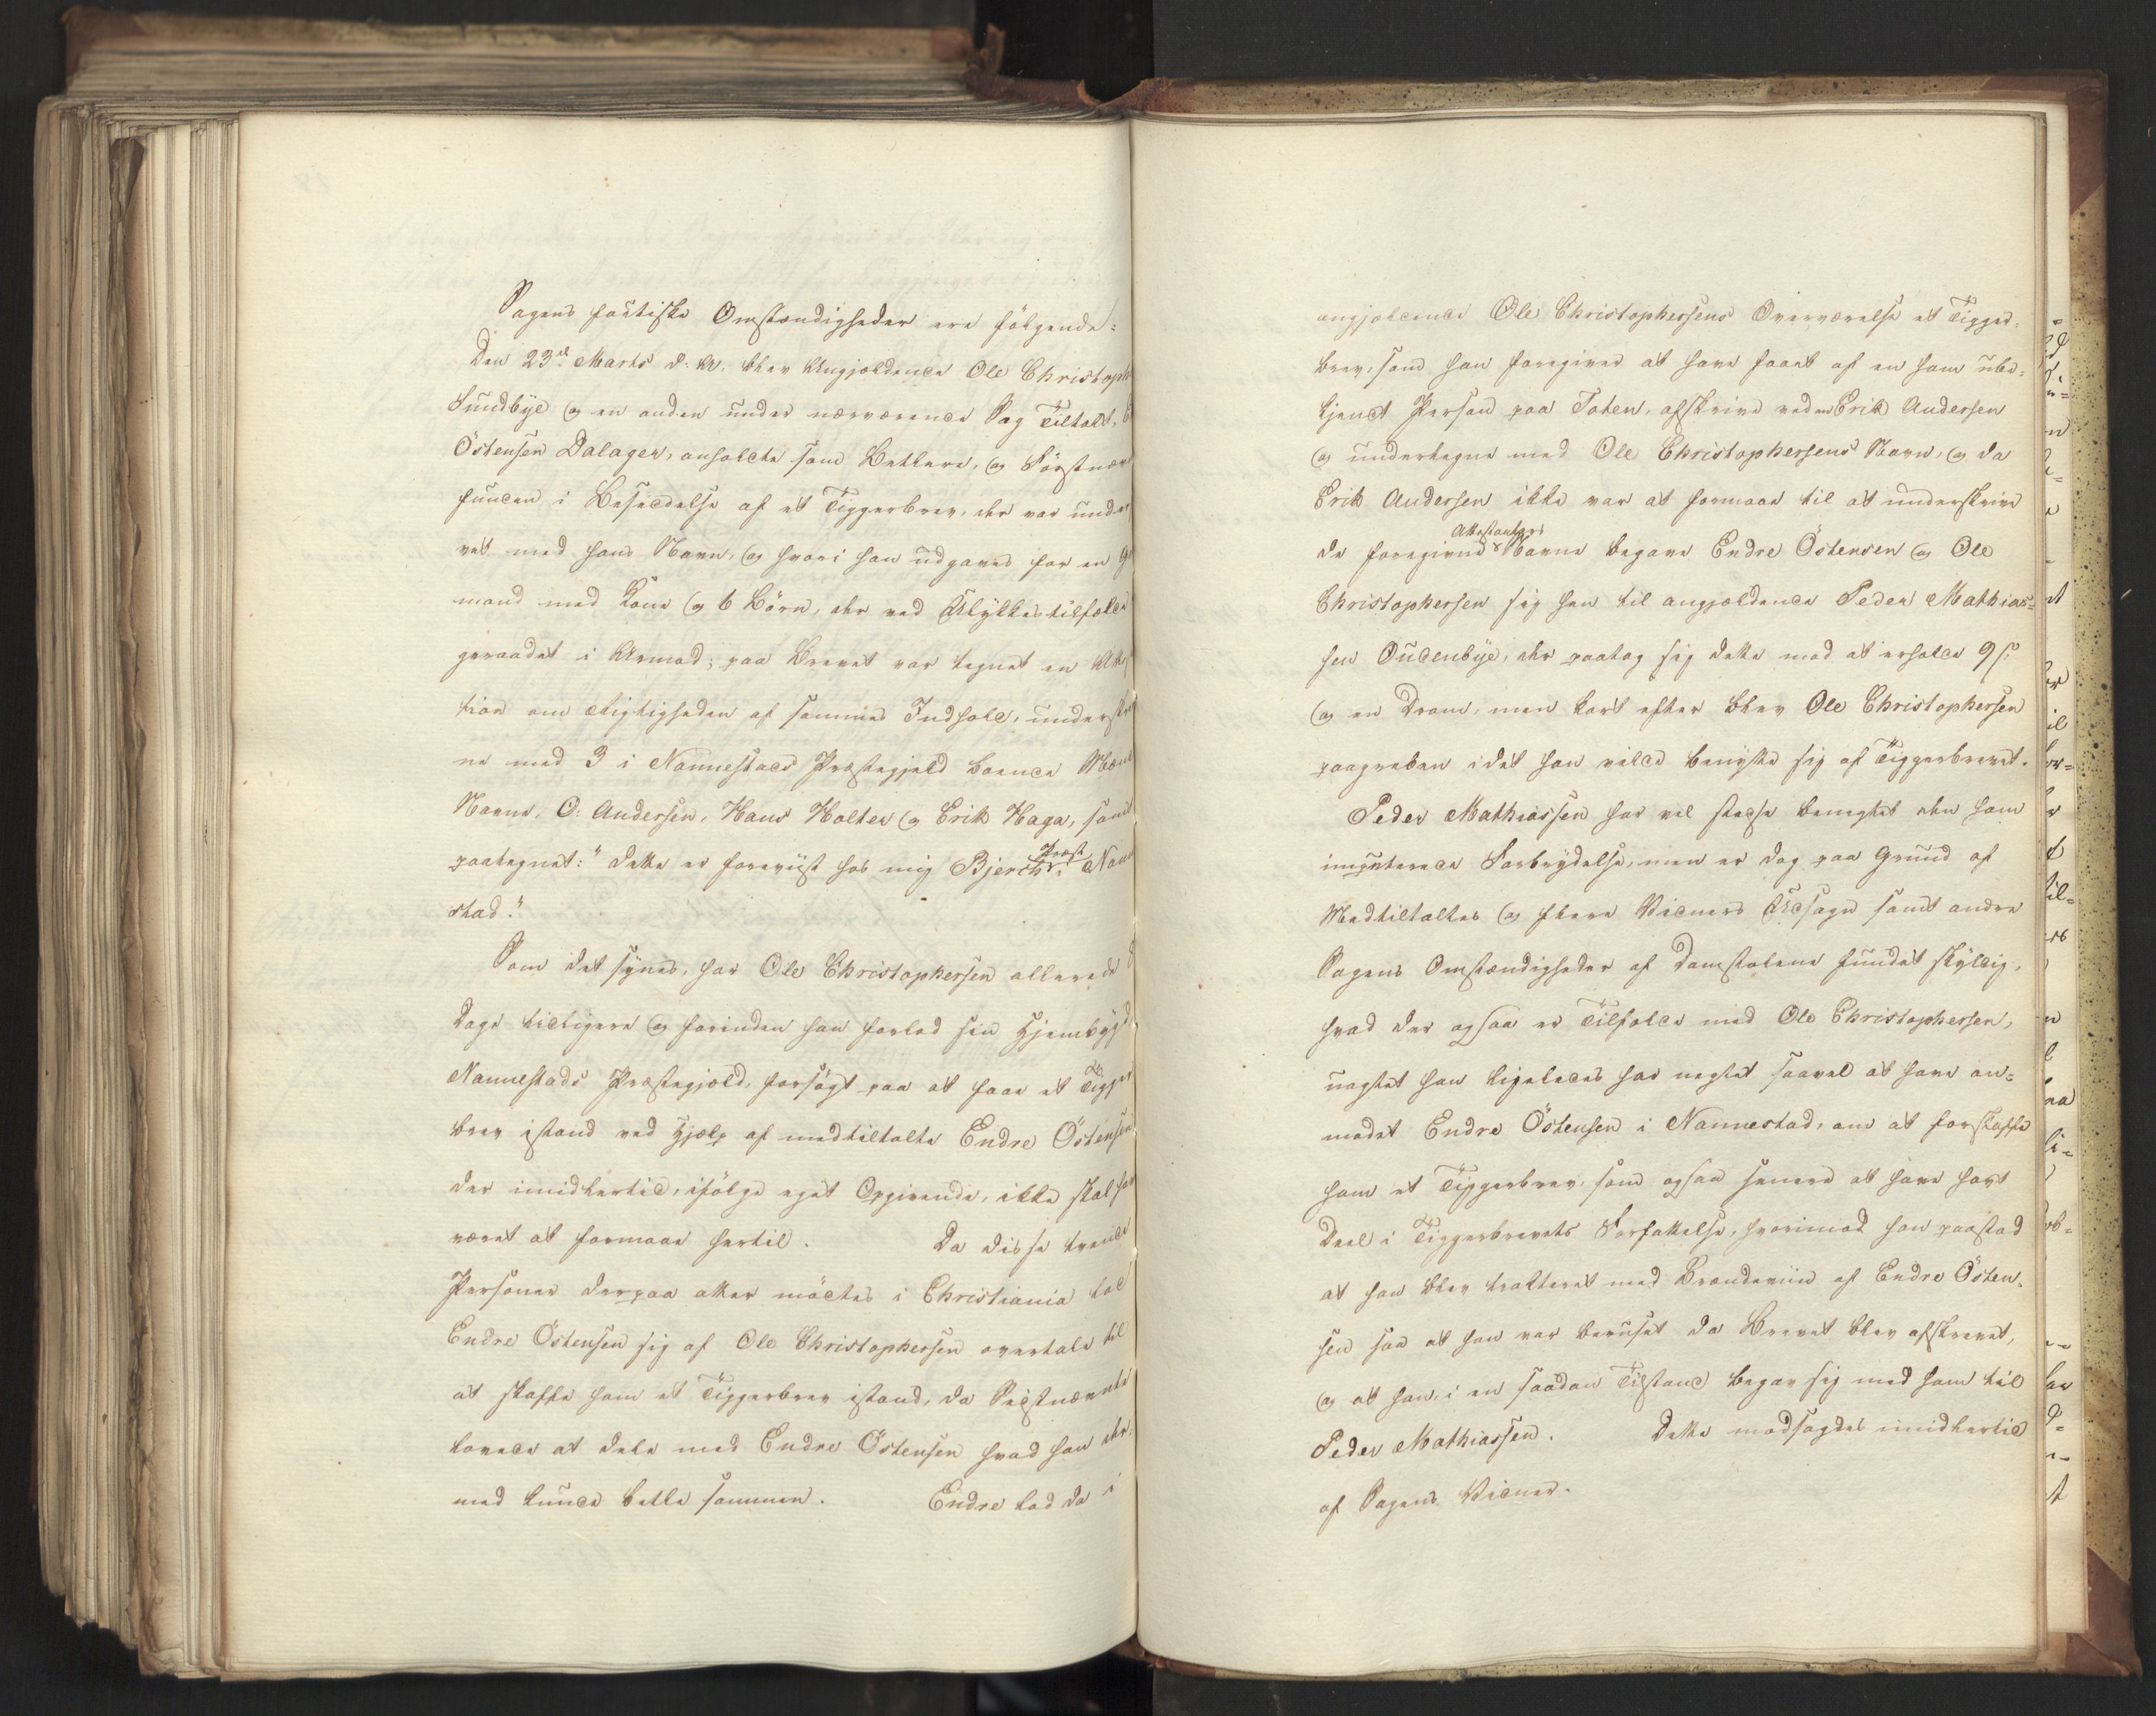 Sagens factiske Omstændigheder ere følgende:
Den 23de Marts d: A: blev Angjældende Ole Christoph
Sundbye og en anden under nærværende Sag Tiltalt, E
Östensen Dalager, anholdte som Betlere, og Förstnæv
funden i Besiddelse af et Tiggerbrev, der var under
net med hans Navn, og hvori han udgaves for en G
mand med Kone og 6 Börn, der ved Ulykkestilfælde
geraadet i Armod; paa Brevet var tegnet en Atte
tion om Rigtigheden af sammes Indhold, underskre
ne med 3 i Nannestads Præstegjeld boende Mænd
Navne, O: Andersen, Hans Holter og Erik Haga, samt
paategnet: "Dette er foreviist hos mig Bjerch Præst i Nanne
stad."
Som det synes, har Ole Christophersen allerede 8
Dage tidligere og forinden han forlod sin Hjembygd
Nannestads Præstegjæld, forsögt paa at faae et Tigger
brev istand ved Hjælp af medtiltalte Endre Östensen
der imidlertid, ifölge eget Opgivende, ikke skal have
været at formaae hertil. Da disse tvende
Personer derpaa atter mödtes i Christiania lod
Endre Östensen sig af Ole Christophersen overtale til
at skaffe ham et Tiggerbrev istand, da Sidstnævnte
lovede at dele med Endre Östensen hvad han der-
med kunde betle sammen. Endre lod da i
angjældende Ole Christophersens Overværelse et Tigger-
brev, som han foregiver at have faaet af en ham ube-
kjendt Person paa Toten, afskrive ved en Erik Andersen
og undertegne med Ole Christophersens Navn, og da
Erik Andersen ikke var at formaae til at underskrive
de foregivne Attestanters Navne begave Endre Östensen og Ole
Christophersen sig hen til angjældende Peder Mathias-
sen Oudenbye, der paatog sig dette mod at erholde 9 ß
og en Dram, men kort efter blev Ole Christophersen
paagreben idet han vilde benytte sig af Tiggerbrevet.
Peder Mathiassen har vel stedse benegtet den ham
imputerede Forbrydelse, men er dog paa Grund af
Medtiltaltes og flere Vidners Udsagn samt andre
Sagens Omstændigheder af Domstolene fundet skyldig,
hvad der ogsaa er Tilfældet med Ole Christophersen,
uagtet han ligeledes har negtet saavel at have an-
modet Endre Östensen i Nannestad, om at forskaffe
ham et Tiggerbrev, som ogsaa senere at have havt
Deel i Tiggerbrevets Forfattelse, hvorimod han paastod
at han blev trakteret med Brændeviin af Endre Östen-
sen saa at han var beruset da Brevet blev afskrevet,
og at han i en saadan Tilstand begav sig med ham til
Peder Mathiassen. Dette modsagdes imidlertid
af Sagens Vidner.